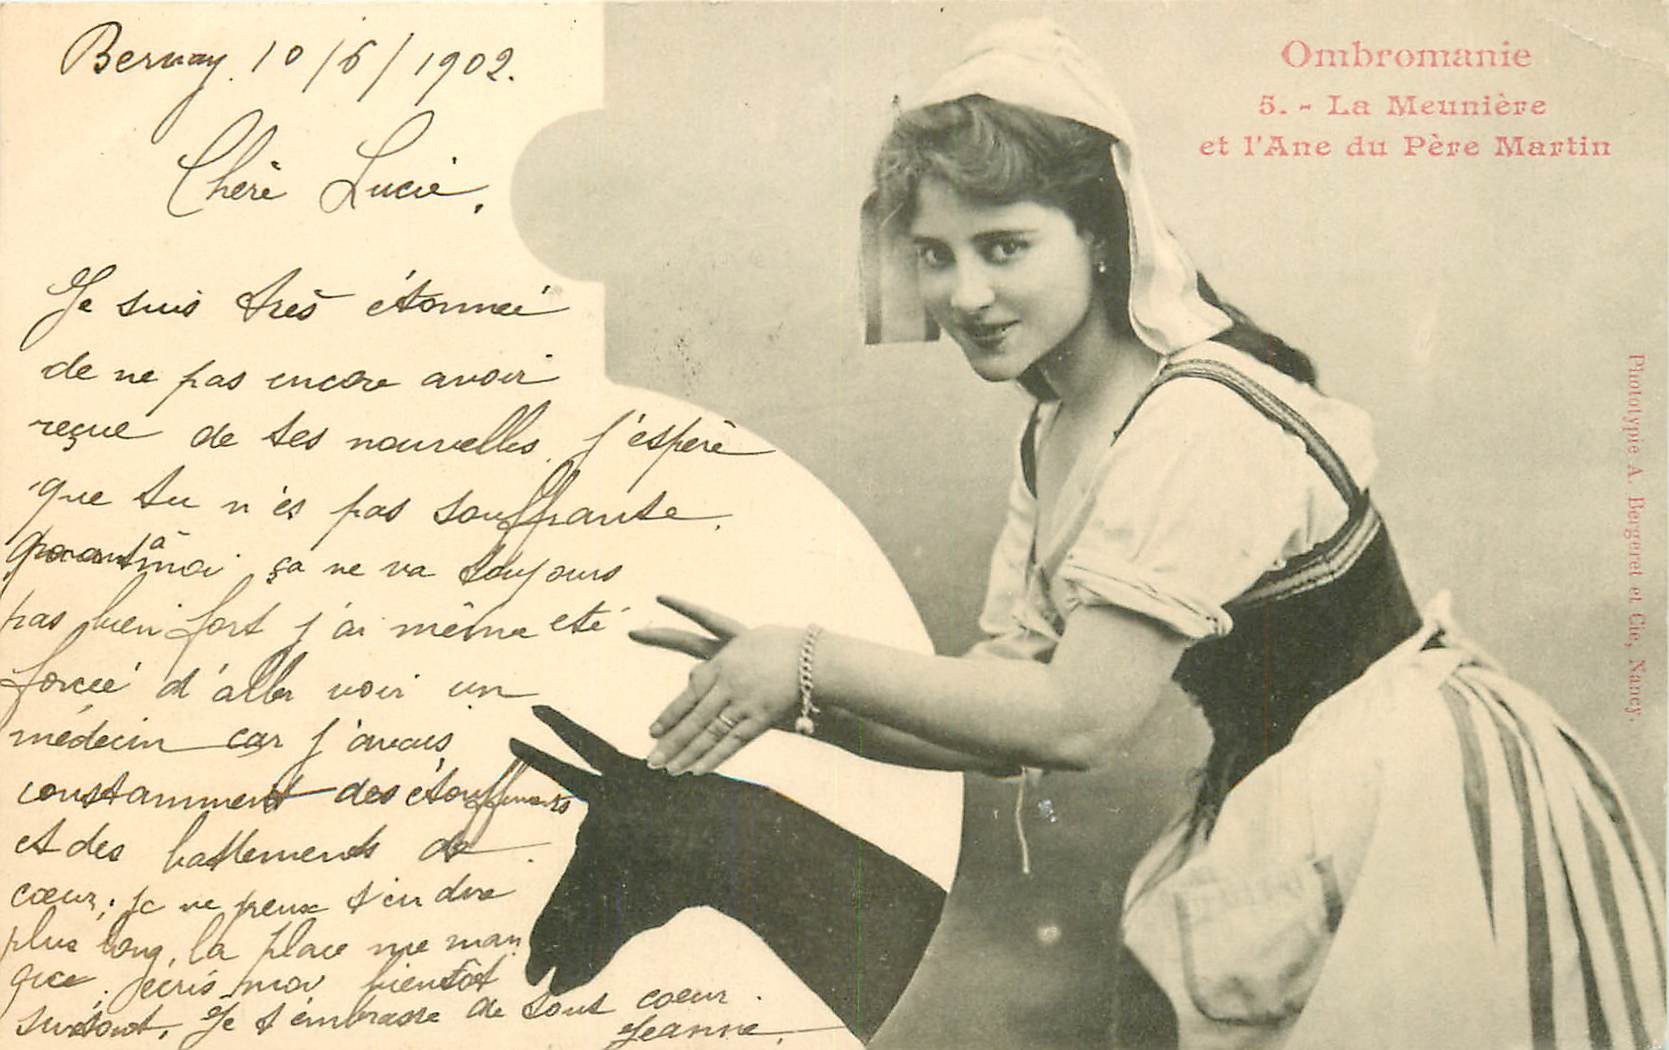 Bernay. 10/6/1902.
Chère Lucie,
Je suis très étonnée
de ne pas encore avoir
reçue de tes nouvelles. j'espère
que tu n'es pas souffrante.
quant à moi ça ne va toujours
pas bien fort j'ai même été
forcée d'aller voir un
médecin car j'avais
constamment des étouffements
et des battements de
cœur; je ne peux t'en dire
plus long, la place me man
que. écris moi bientôt
surtout, Je t'embrasse de tout cœur.
Jeanne.
Ombromanie
5. - La Meunière
et l'Ane du Père Martin
Phototypie A. Bergeret et Cie, Nancy.